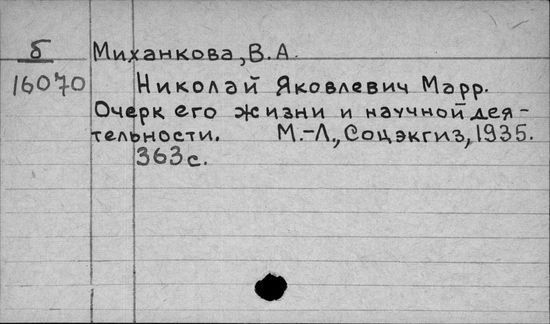 б Миханкова, В.А.
16070 Николай Яковлевич Марр.
Очерк его жизни и научной дея-
тельности. М.-Л., Соцэкгиз, 1935.
363с.